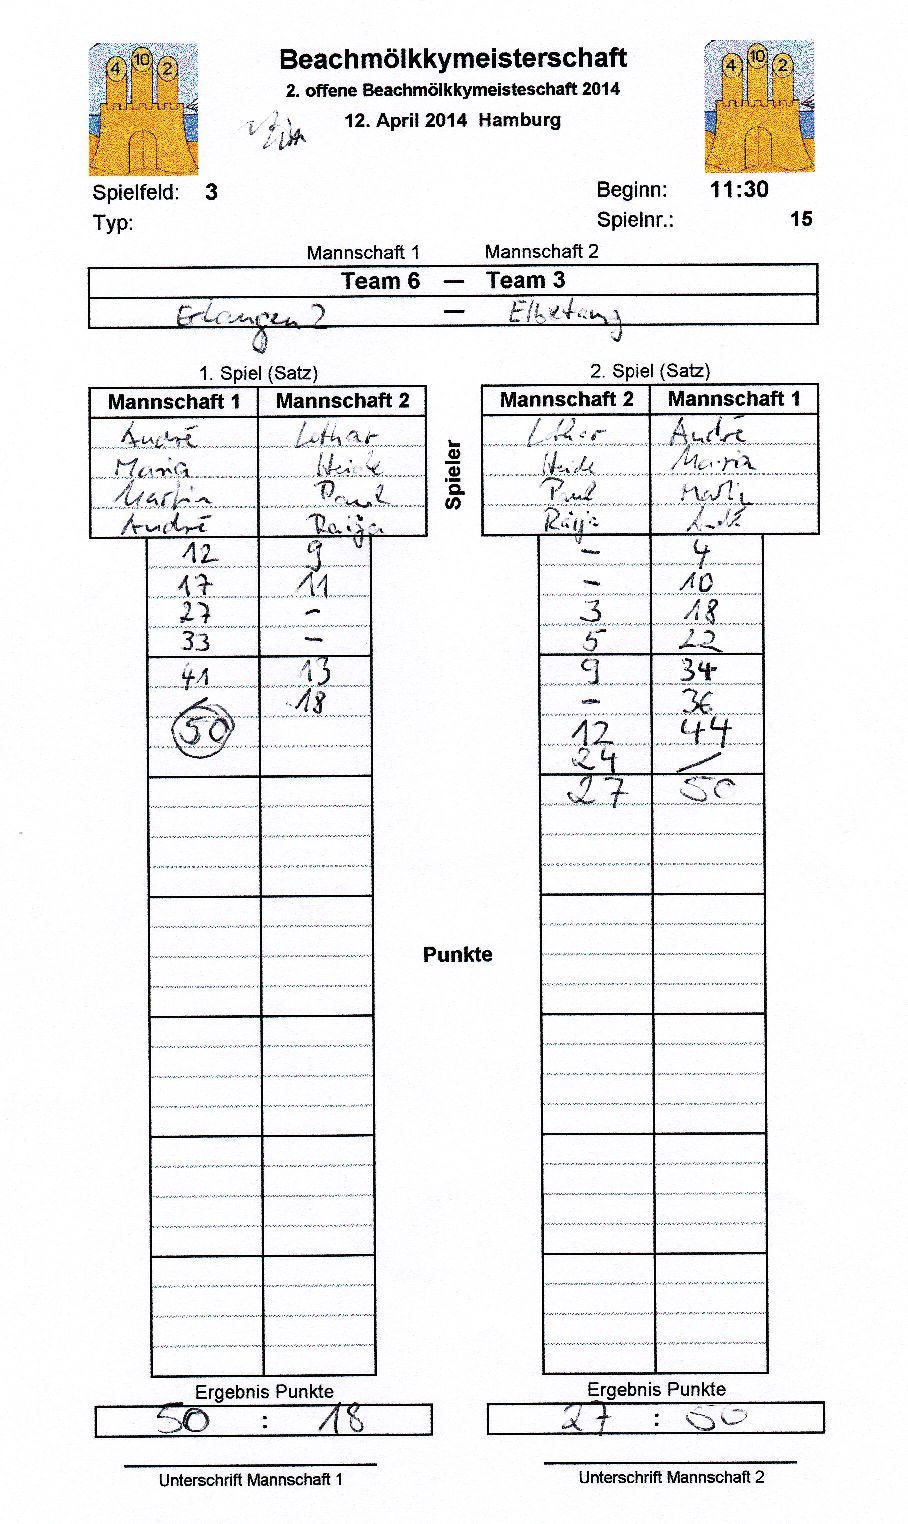 4 10 2
4 10 2
Beachmölkkymeisterschaft
2. offene Beachmölkkymeisteschaft 2014
12. April 2014 Hamburg
Spielfeld: 3
Beginn: 11:30
Typ:
Spielnr.: 15
Mannschaft 1 Mannschaft 2
Team 6 — Team 3
Erlangen 2 — Elbetang
1. Spiel (Satz)
2. Spiel (Satz)
Mannschaft 1 Mannschaft 2
Mannschaft 2 Mannschaft 1
André Lothar
Maria Heide
Martin Paul
André Raija
Spieler
Lothar André
Heide Maria
Paul Martin
Raija André
12 9
17 11
27 –
33 –
41 13
/ 18
50
– 4
– 10
3 18
5 22
9 34
– 36
12 44
24 /
27 50
Punkte
Ergebnis Punkte
Ergebnis Punkte
50 : 18
27 : 50
Unterschrift Mannschaft 1
Unterschrift Mannschaft 2